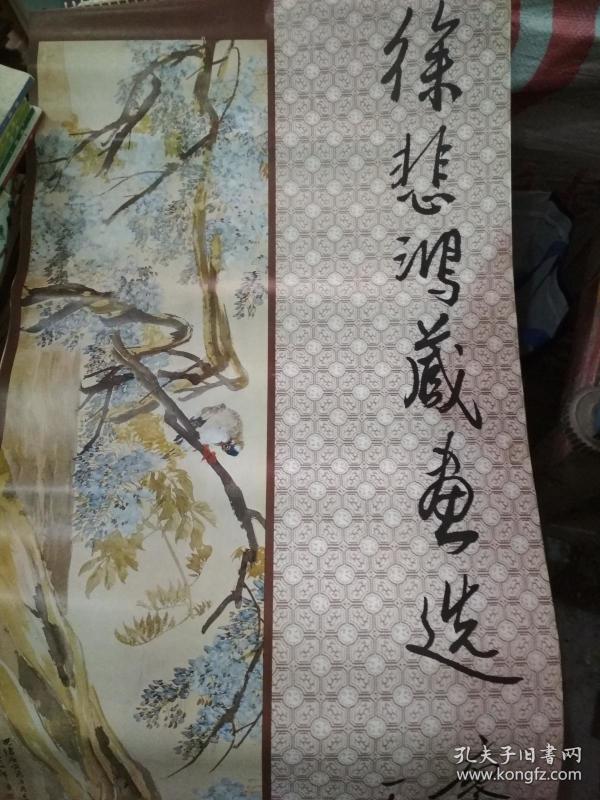 徐悲鸿藏画选
孔夫子旧书网
www.kongfz.com